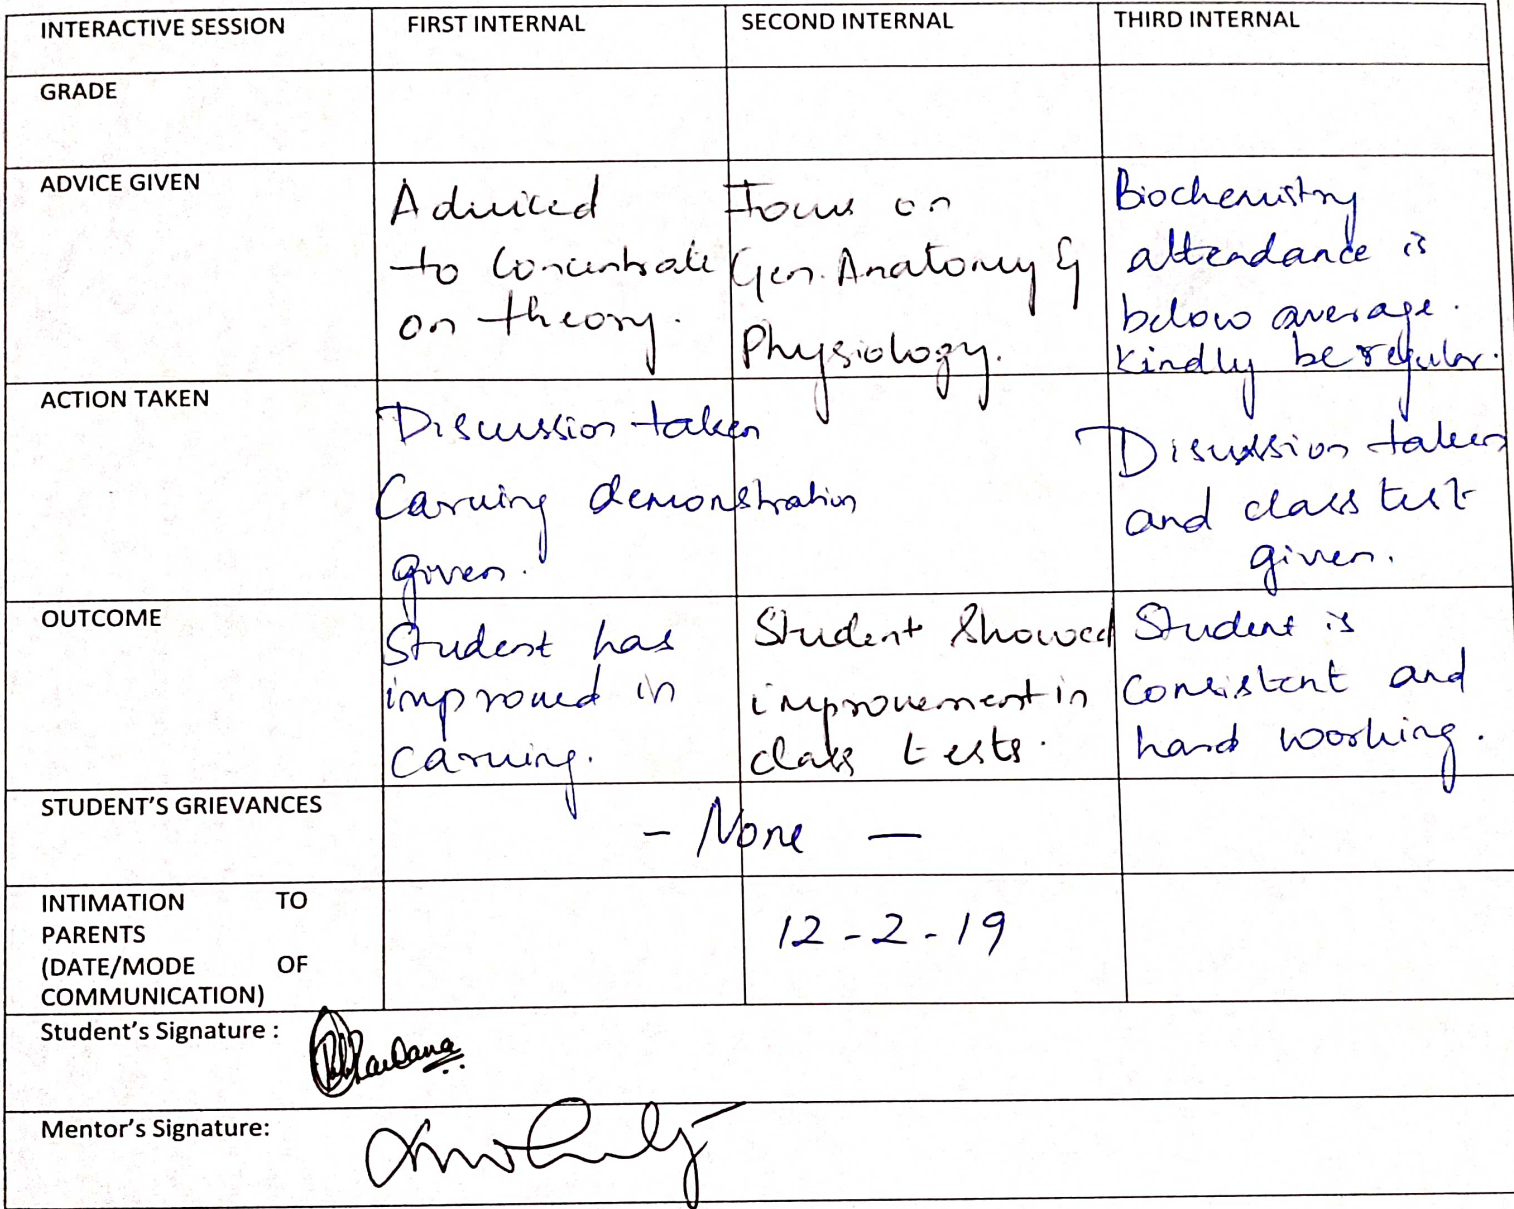 INTERACTIVE SESSION FIRST INTERNAL SECOND INTERNAL THIRD INTERNAL
GRADE
ADVICE GIVEN
Adviced
to Concentrate
on theory.
Focus on
Gen. Anatomy &
Physiology.
Biochemistry
attendance is
below average.
Kindly be regular.
ACTION TAKEN
Discussion taken
Carving demonstration
given.
Discussion taken
and class test
given.
OUTCOME
Student has
improved in
carving.
Student showed
improvement in
class tests.
Student is
consistent and
hard working.
STUDENT'S GRIEVANCES
- None -
INTIMATION TO
PARENTS
(DATE/MODE OF
COMMUNICATION)
12-2-19
Student's Signature :
Mentor's Signature: